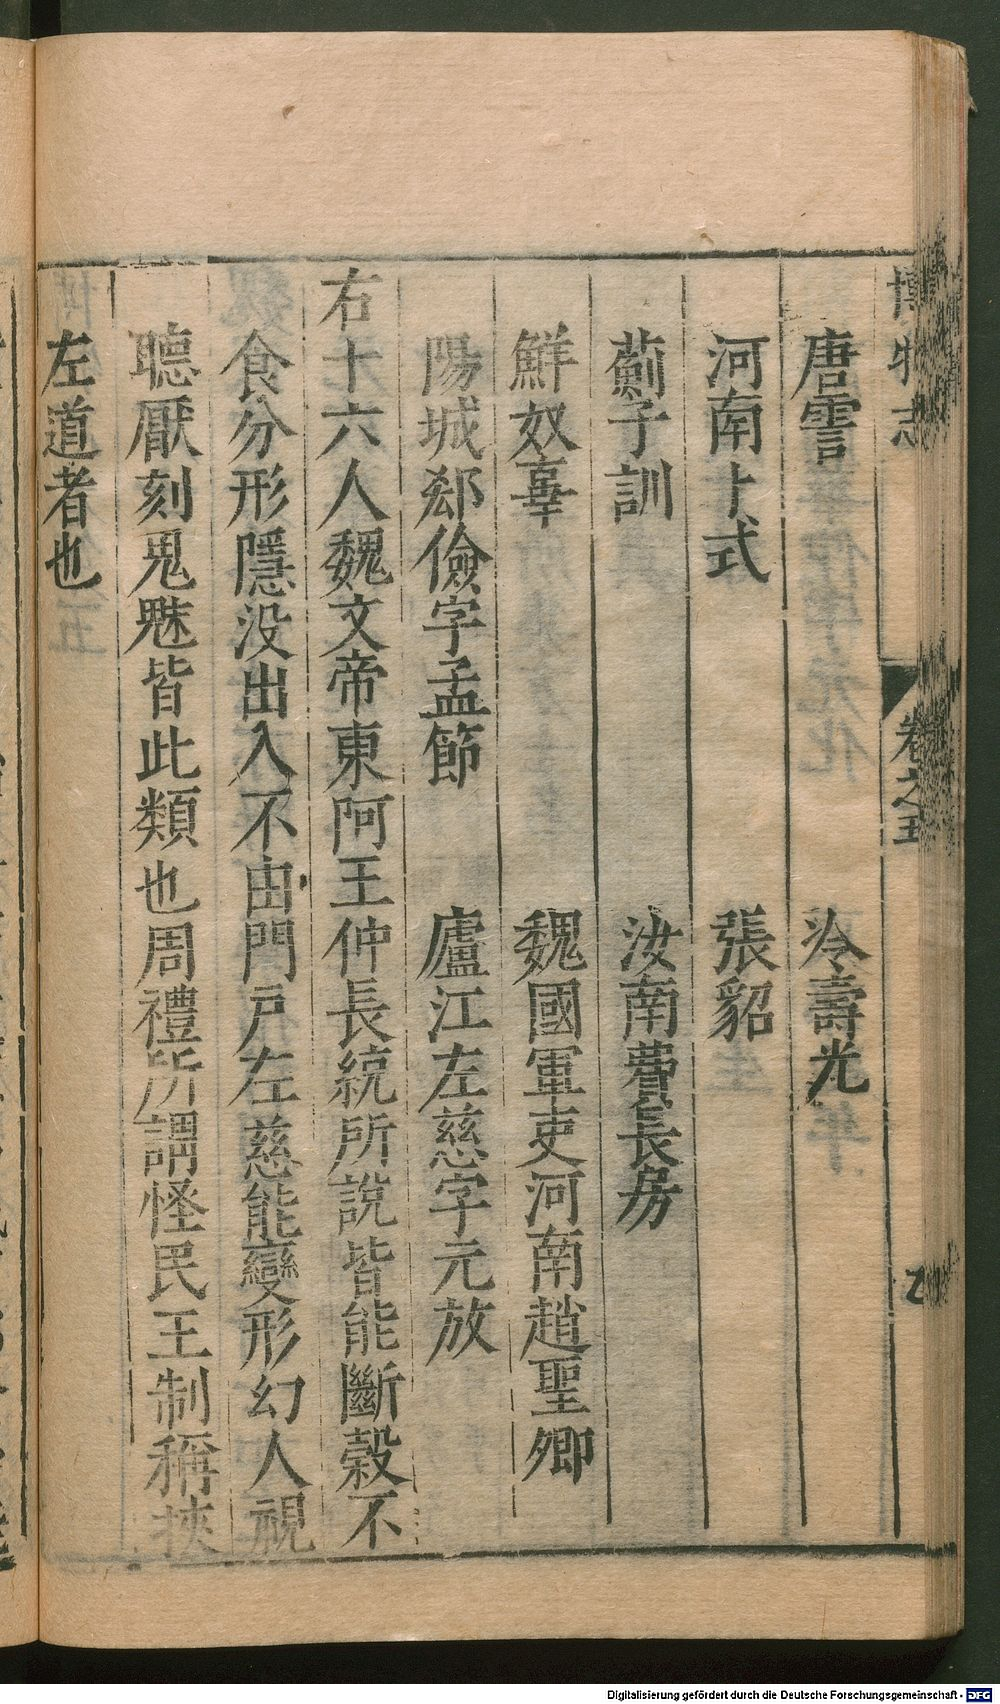 博物志 卷之五
唐霅 冷壽光
河南卜式 張貂
薊子訓 汝南費長房
鮮奴辜 魏國軍吏河南趙聖卿
陽城郄儉字孟節 廬江左慈字元放
右十六人魏文帝東阿王仲長統所說皆能斷穀不
食分形隱没出入不由門戸左慈能變形幻人視
聽厭刻鬼魅皆此類也周禮所謂怪民王制稱挾
左道者也
Digitalisierung gefördert durch die Deutsche Forschungsgemeinschaft - DFG